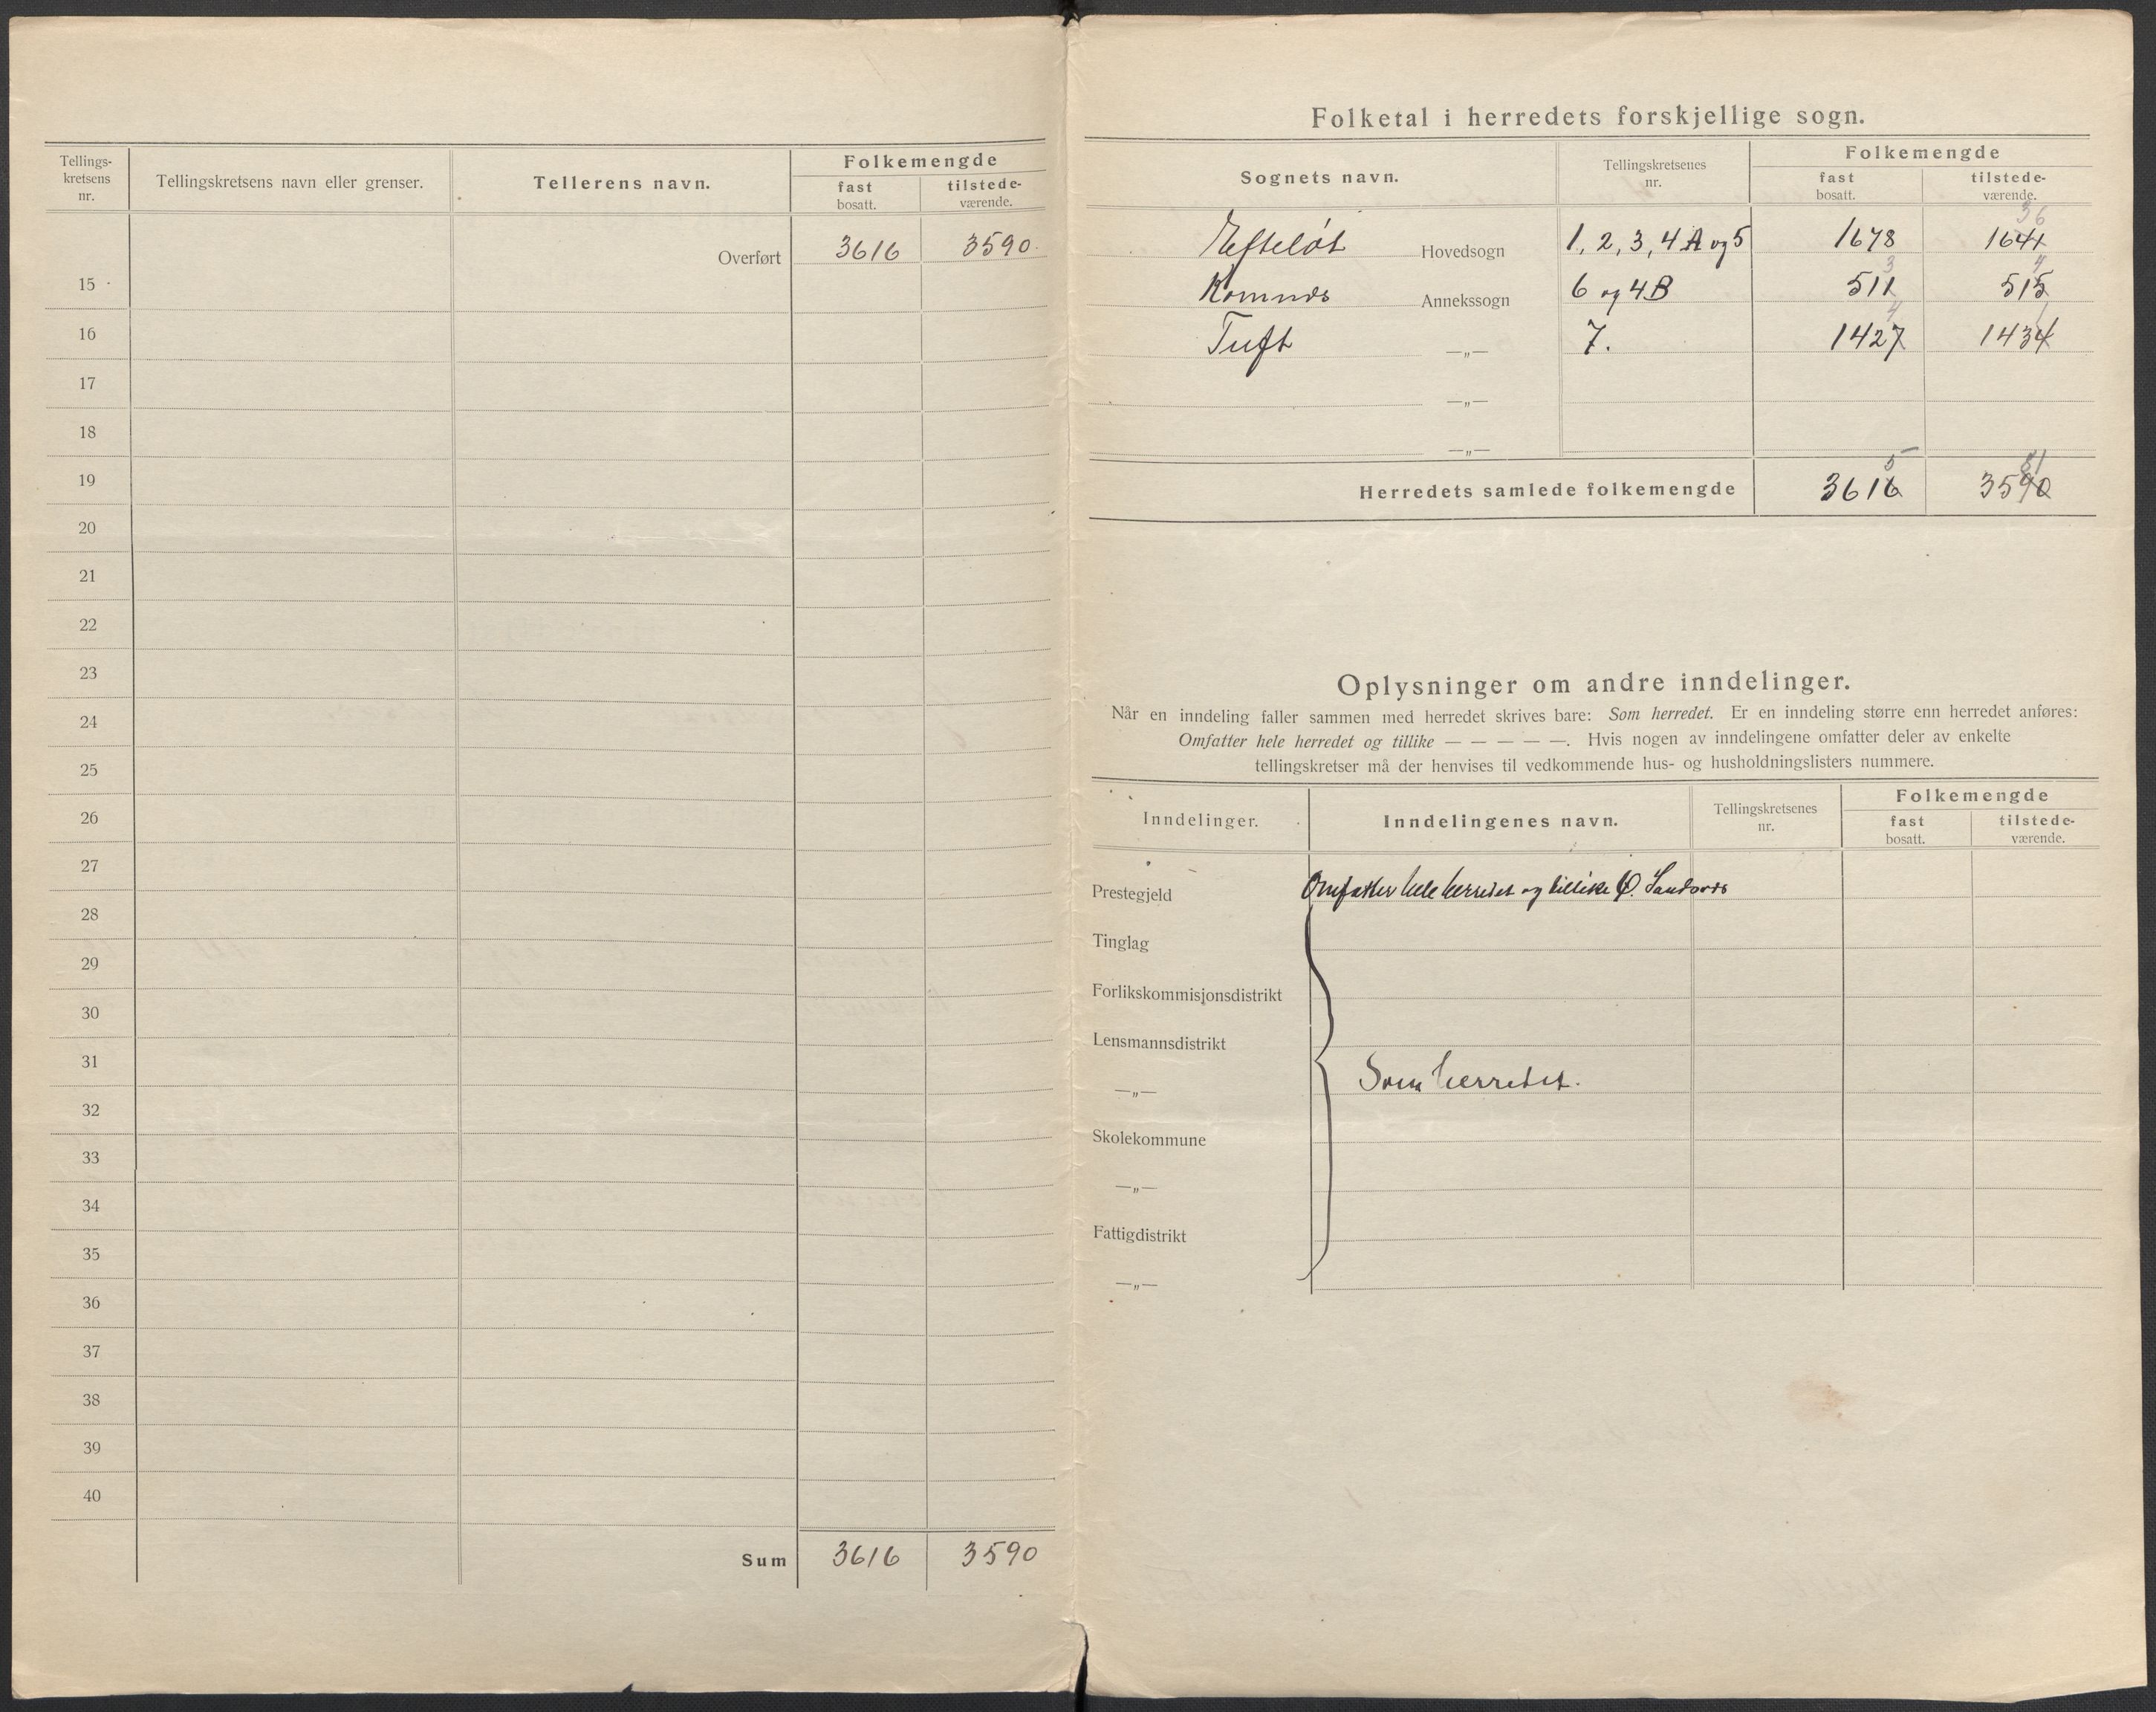 Tellings-
kretsens
nr.
Tellingskretsens navn eller grenser.
Tellerens navn.
Folkemengde
fast
bosatt.
tilstede-
værende.
Overført 3616 3590
15
16
17
18
19
20
21
22
23
24
25
26
27
28
29
30
31
32
33
34
35
36
37
38
39
40
Sum 3616 3590
Folketal i herredets forskjellige sogn.
Sognets navn.
Tellingskretsenes
nr.
Folkemengde
fast
bosatt.
tilstede-
værende.
36
Efteløt Hovedsogn 1, 2, 3, 4 A og 5 1678 1641
3 4
Komnes Annekssogn 6 og 4B 511 515
4 1
Tuft —„— 7. 1427 1434
—„—
—„—
5 81
Herredets samlede folkemengde 3616 3590
Oplysninger om andre inndelinger.
Når en inndeling faller sammen med herredet skrives bare: Som herredet. Er en inndeling større enn herredet anføres:
Omfatter hele herredet og tillike — — — — —. Hvis nogen av inndelingene omfatter deler av enkelte
tellingskretser må der henvises til vedkommende hus- og husholdningslisters nummere.
Inndelinger.
Inndelingenes navn.
Tellingskretsenes
nr.
Folkemengde
fast
bosatt.
tilstede-
værende.
Prestegjeld Omfatter hele herredet og tillike Ø. Sandsvær
Tinglag
Forlikskommisjonsdistrikt
Lensmannsdistrikt
—„— Som herredet.
Skolekommune
—„—
Fattigdistrikt
—„—